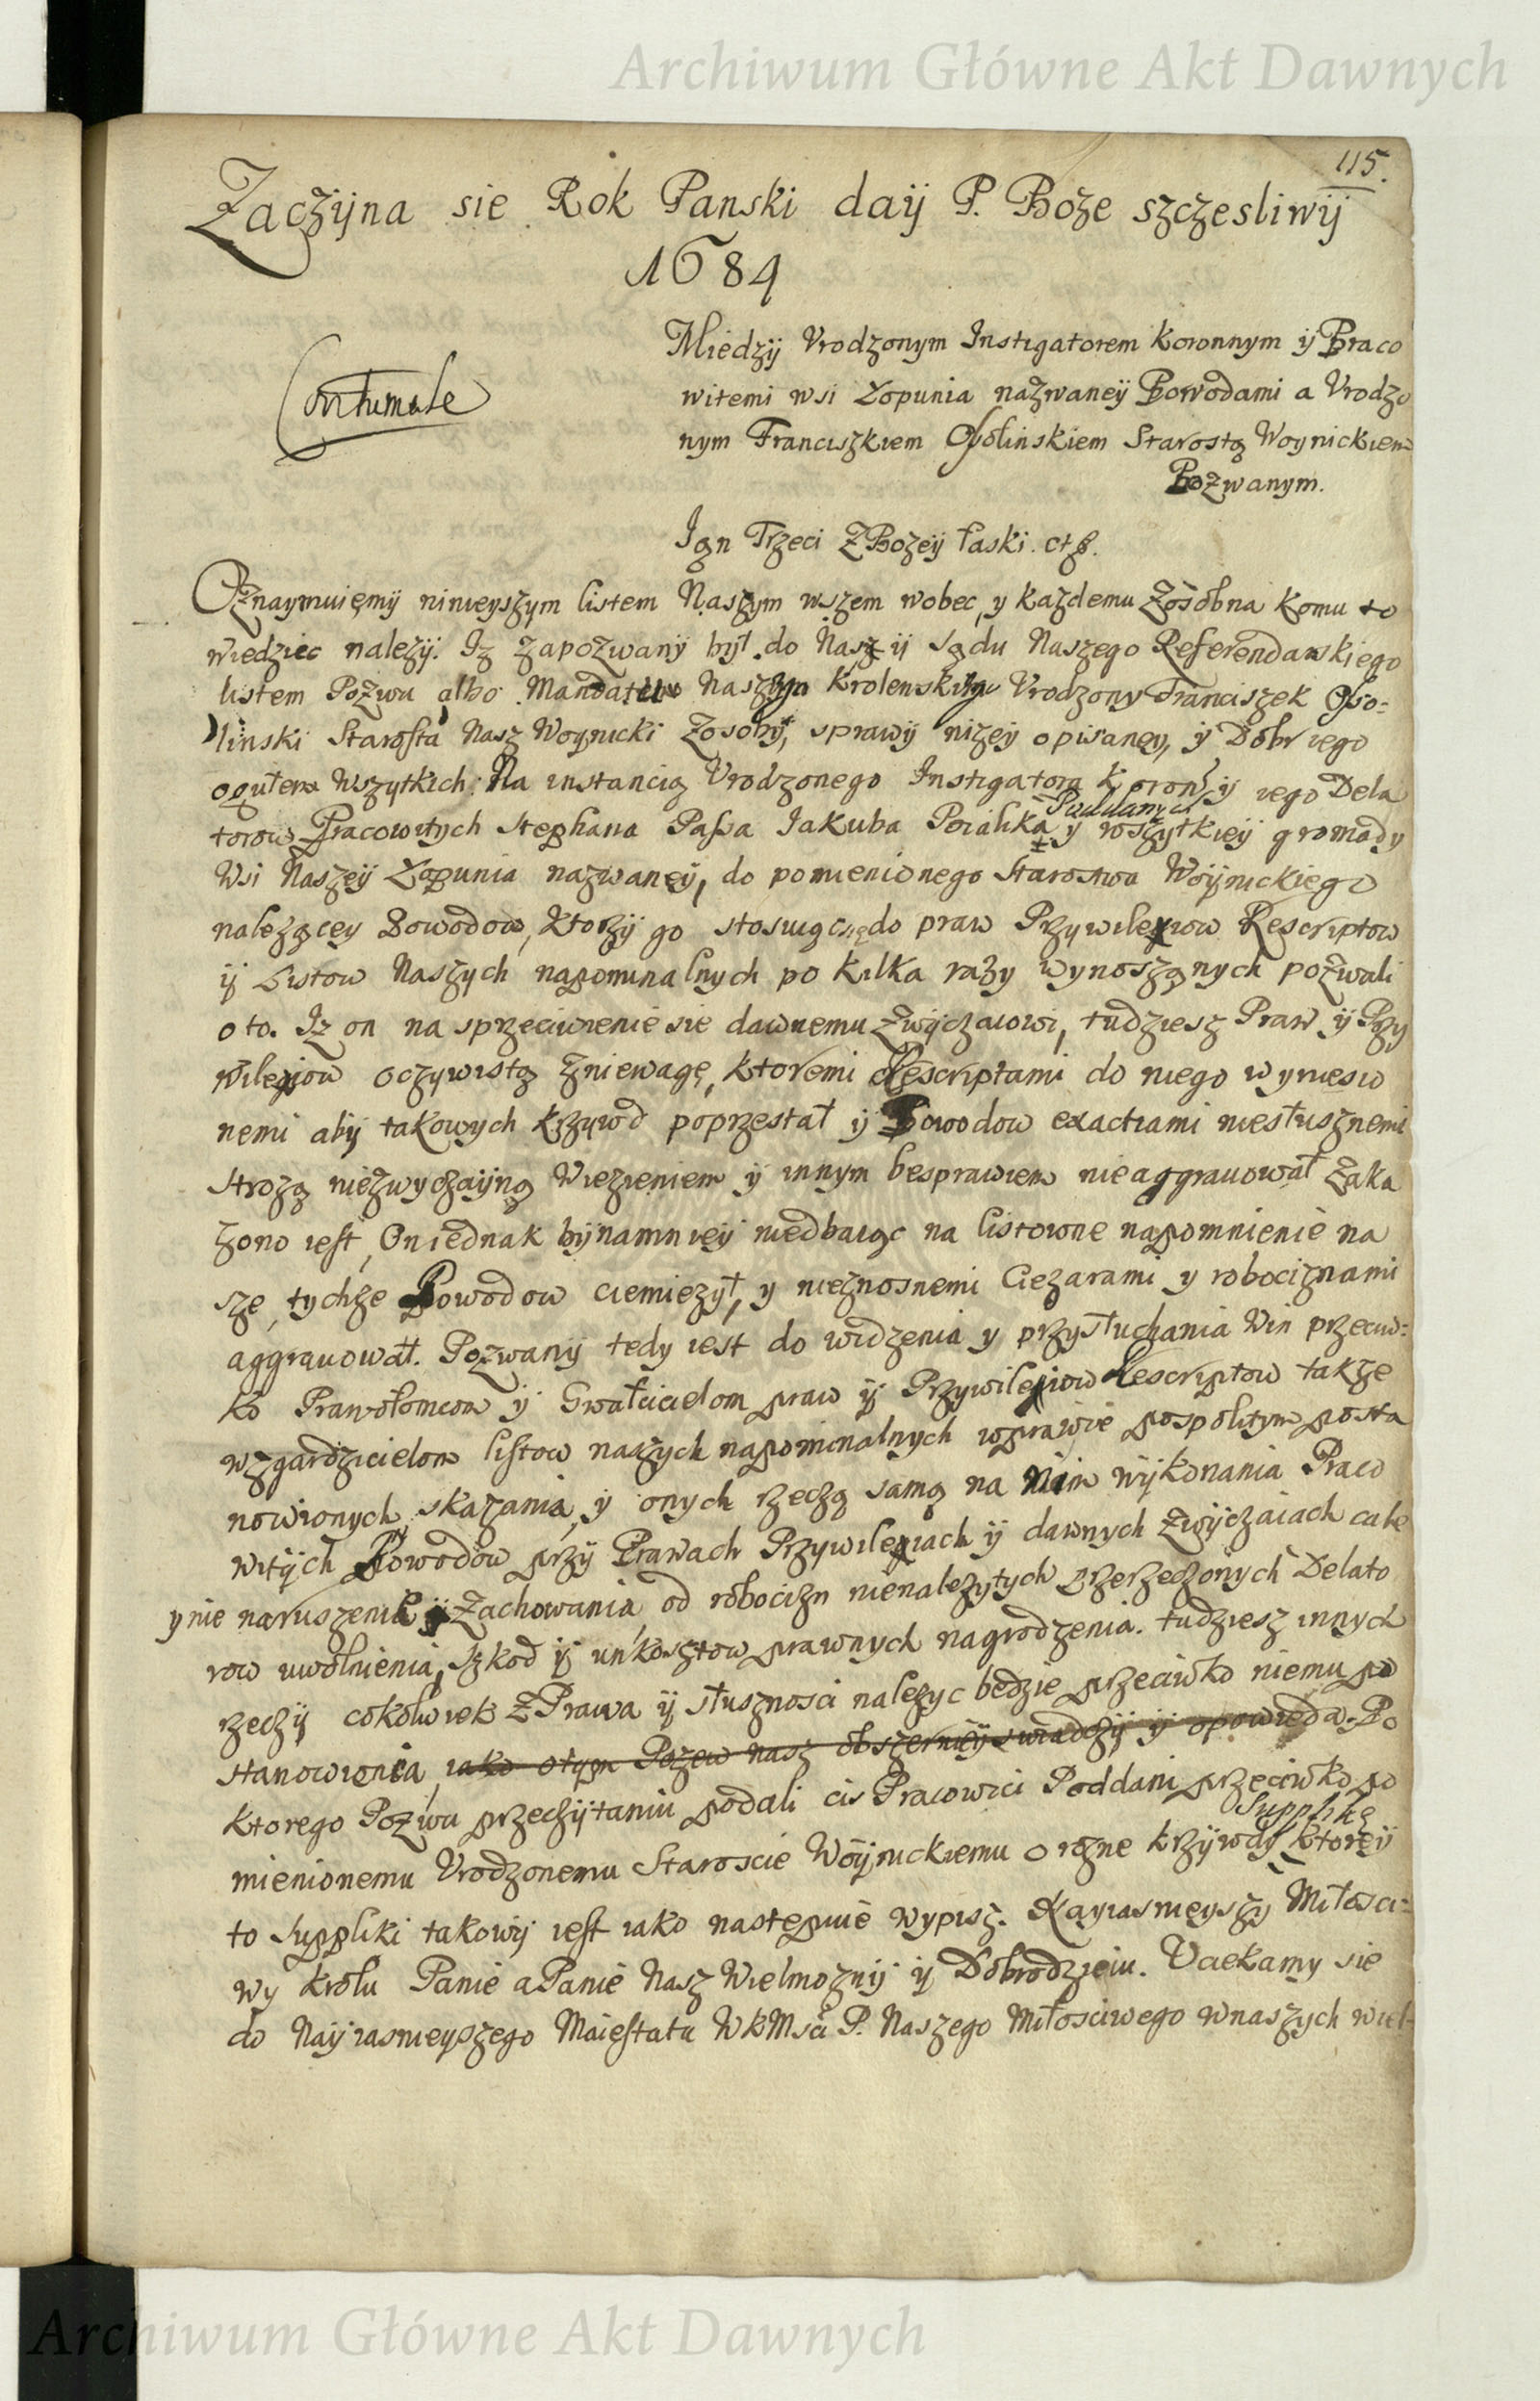 Archiwum Główne Akt Dawnych
115.
Zaczÿna sie Rok Panski daÿ P. Boze szczesliwÿ
1684
Contumale
Miedzÿ Vrodzonym Instigatorem Koronnym ÿ Praco
witemi wsi Łopunia nazwaneÿ Powodami a Vrodzo
nym Franciszkiem Ossolinskiem Starostą Woynickiem
Pozwanym.
Ian Trzeci Z Bozeÿ łaski. etc.
Oznaymuięmÿ ninieyszym listem Naszym wszem wobec, y kazdemu Zosobna komu to
wiedziec nalezÿ. Iz zapozwanÿ był do Nas ÿ sądu Naszego Referendarskiego
listem Pozwu albo Mandatem Naszym Krolewskim Vrodzony Franciszek Osso=
linski Starosta Nasz Woynicki Zosobÿ, sprawÿ nizeÿ opisaneÿ, ÿ Dobr iego
ogułem Wszytkich: Na instancią Vrodzonego Instigatora Koron. ÿ iego Dela
torow Pracowitych Stephana Passa Iakuba Poialika Poddanych y wszytkieÿ gromady
Wsi Naszeÿ Łopunia nazwaneÿ, do pomienionego Starostwa Woÿnickiego
nalezącey Powodow, ktorzÿ go stosuiąc się do praw Przywileiow Rescriptow
ÿ Listow Naszych napominalnych po kilka razy wynoszonych pozwali
o to. Iz on na sprzeciwienie sie dawnemu Zwÿczaiowi, tudziesz Praw ÿ Przy
wileiow oczywistą zniewagę, ktoremi Rescriptami do niego wyniesio
nemi abÿ takowych krzywd poprzestał ÿ Powodow exactiami niesłusznemi
strozą niezwyczaÿną Wiezieniem ÿ innym besprawiem nie aggrauował Zaka
zono iest, On iednak bÿnamnieÿ niedbaiąc na listowne napomnienie na
sze, tychze Powodow ciemiezył, y nieznosnemi Ciezarami y robociznami
aggrauował. Pozwanÿ tedy iest do widzenia y przysłuchania Win przeciw=
ko Prawołomcom ÿ Gwałcicielom praw ÿ Przywileiow Rescriptow takze
wzgardzicielom listow naszych napominalnych wprawie pospolitym posta
nowionych skazania, ÿ onych rzeczą samą na Nim wÿkonania Praco
witÿch Powodow przÿ Prawach Przywileiach ÿ dawnych Zwÿczaiach cale
y nie naruszenie Zachowania od robocizn nienalezytych przerzeczonych Delato
row uwolnienia, szkod ÿ unkosztow prawnych nagrodzenia. tudziesz innych
rzeczÿ cokolwiek Z Prawa ÿ słusznosci nalezyc bedzie przeciwko niemu po
stanowienia, iako otym Pozew nasz obszernieÿ swiadczÿ ÿ opowieda. Po
ktorego Pozwu przeczÿtaniu podali cis Pracowici Poddani przeciwko po
mienionemu Vrodzonemu Staroscie Woÿnickiemu o rozne krzÿwdÿ Supplikę ktoreÿ
to suppliki takowÿ iest iako nastepuie wypisz. Nayiasnieyszy Miłosci=
wy krolu Panie a Panie Nasz Wielmoznÿ ÿ Dobrodzieiu. Vciekamy sie
do Naÿiasnieyszego Maiestatu WKMsci P. Naszego Miłosciwego wnaszych wiel
Archiwum Główne Akt Dawnych